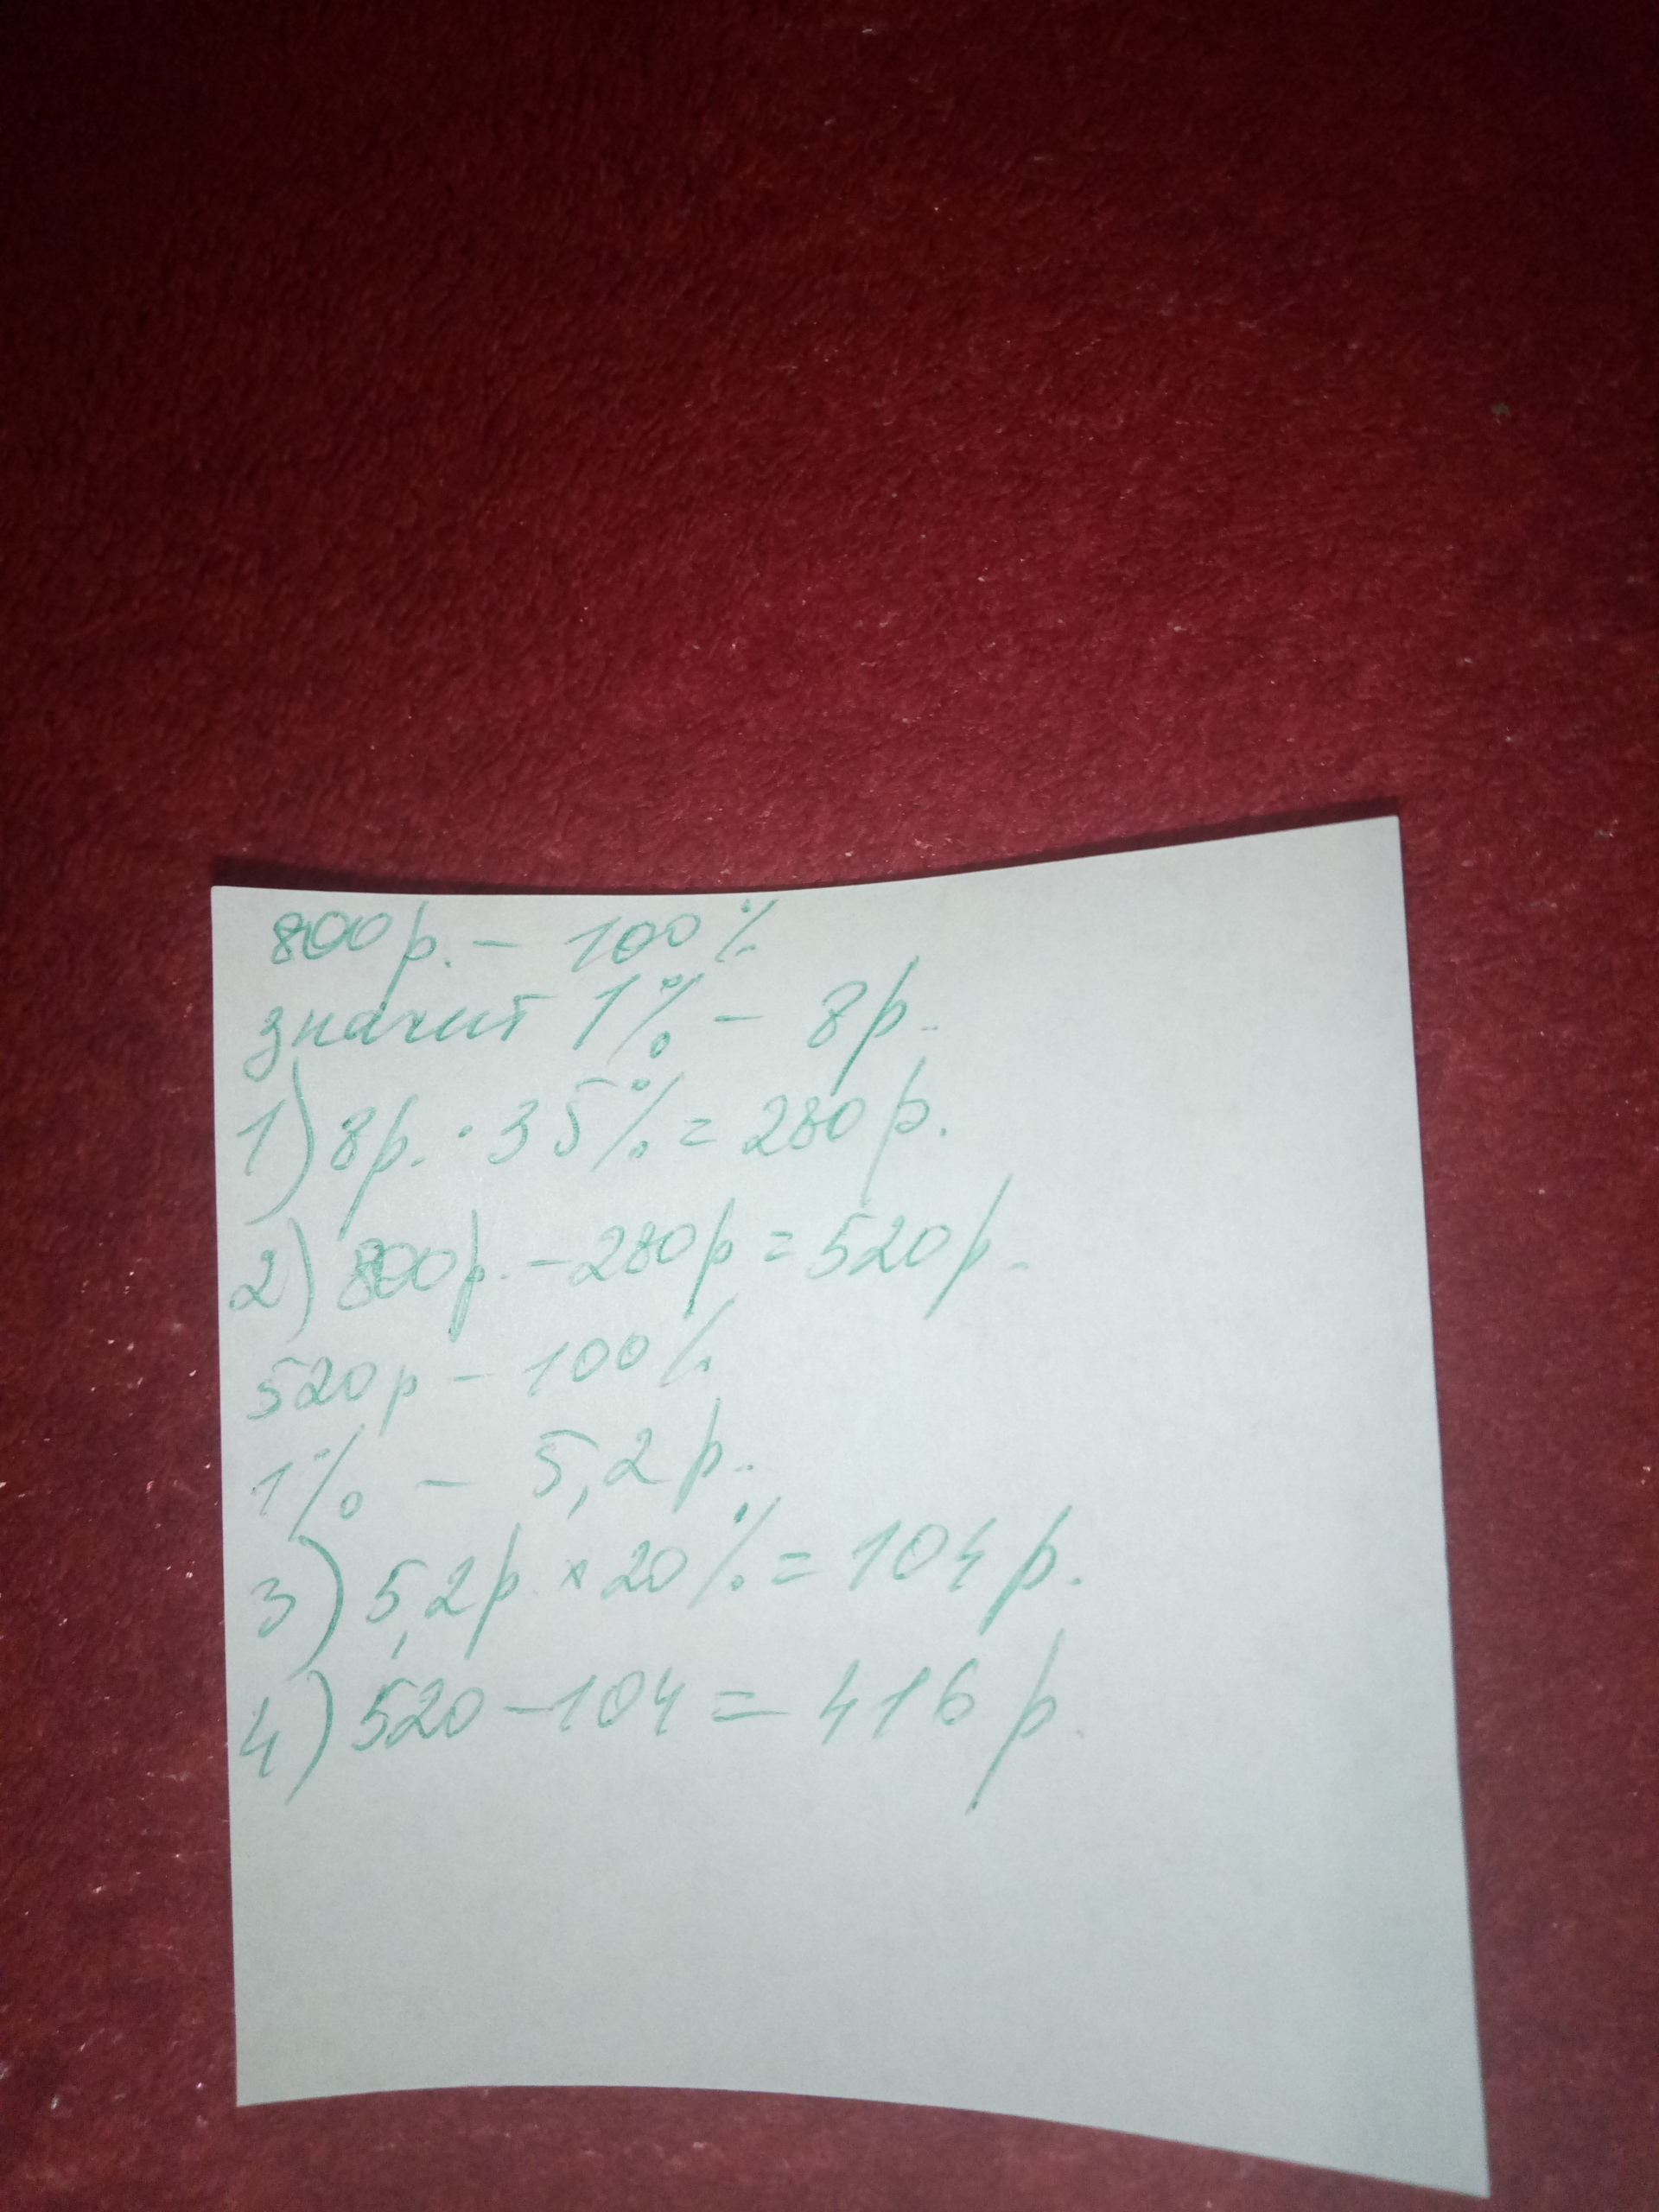 800р. - 100%
значит 1% - 8р.
1) 8р. · 35% = 280р.
2) 800р. - 280р = 520р.
520р - 100%
1% - 5,2р.
3) 5,2р. × 20% = 104р.
4) 520 - 104 = 416р.